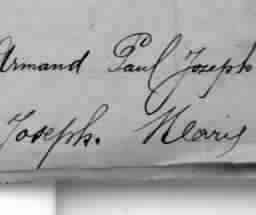 Armand Paul Joseph
Joseph. Maris